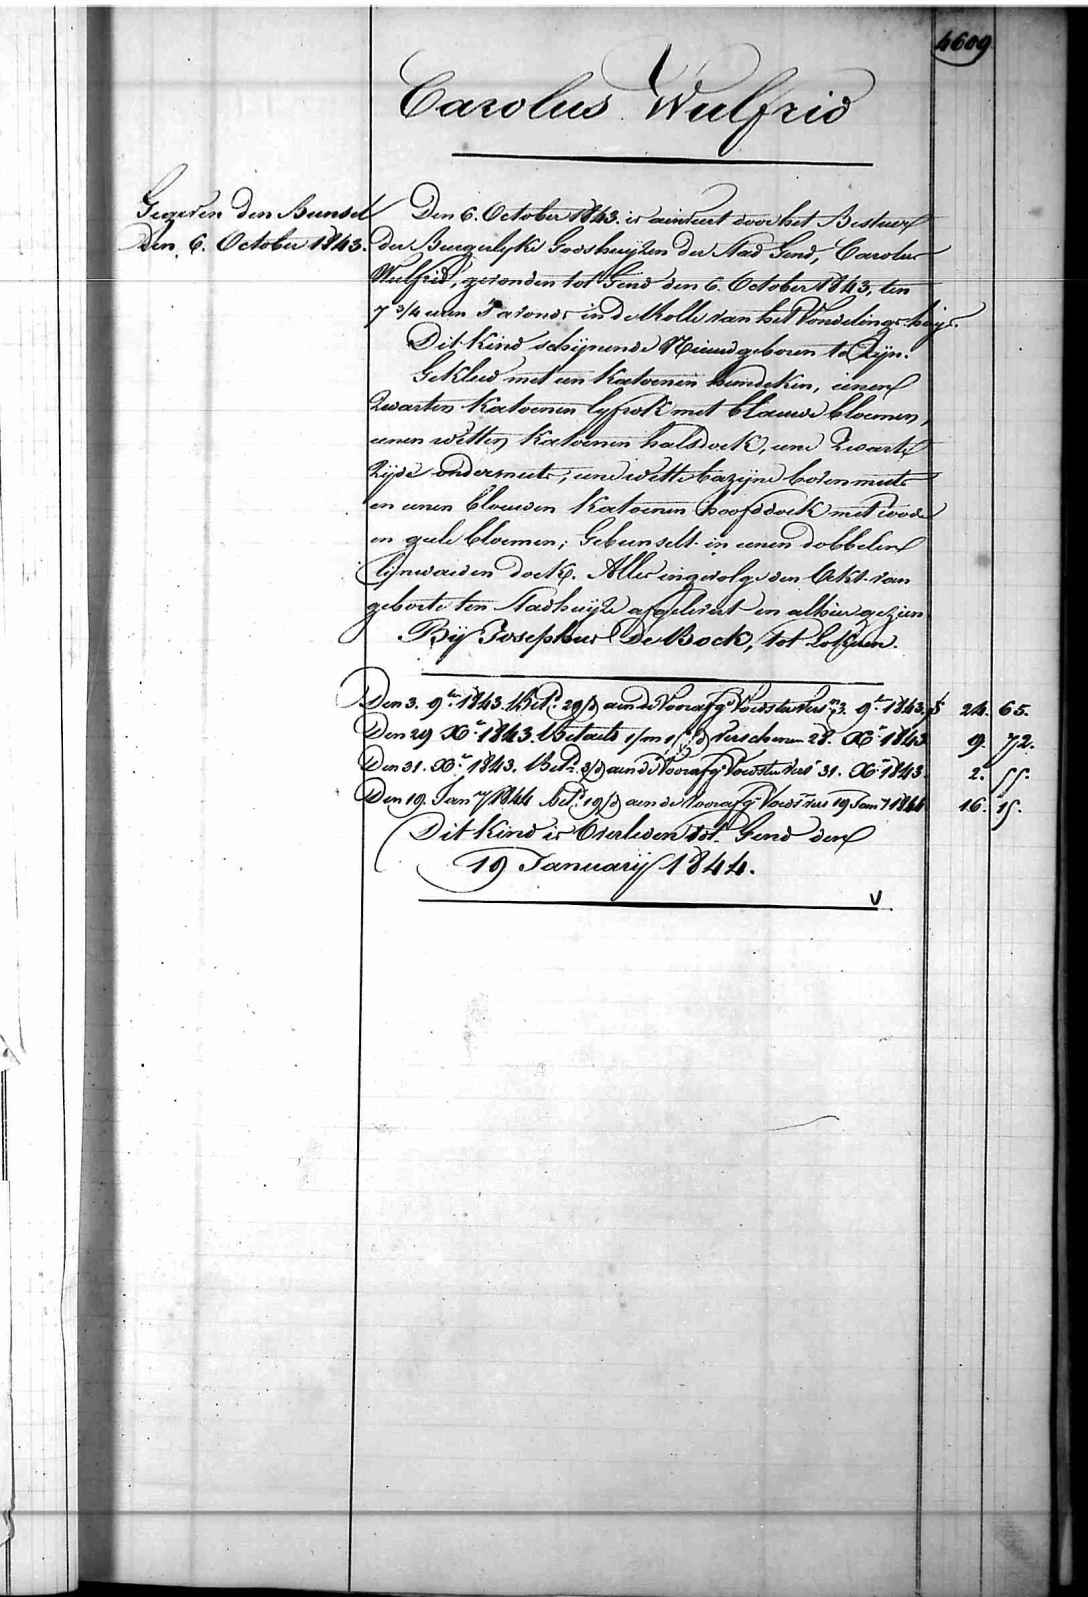 4609
Carolus Wulfrid
Gegeven den Bunsel
Den 6. October 1843.
Den 6. October 1843. is aenveert door het Bestuer
der Burgerlyke Godshuijzen der Stad Gend, Carolus
Wulfrid, gevonden tot Gend den 6. October 1843, ten
7 3/4 uren 's avonds in de Rolle van het Vondelingshuijs.
Dit kind schijnende Nieuwgeboren te Zijn.
Gekleed met een katoenen hemdeken, eenen
Zwarten katoenen lyfrok met blauwe bloemen,
eenen witten katoenen halsdoek, eene Zwarte
Zijde ondermuts, eene witte bazijne bovenmuts
en eenen blauwen katoenen hoofddoek met roode
en geele bloemen; Gebunselt in eenen dobbelen
lijnwaeden doek. Alles ingevolge den Ackt van
geboorte ten Stadhuijze afgelevert en alhier gezien.
Bij Josephus De Bock, tot Lokeren.
Den 3. 9br 1843. Bet. 29/d aen de Voorafg. Voedster vers. 3. 9br 1843. f 24. 65.
Den 29 Xr 1843. Betaelt 1/m verschenen 28. Xr 1843 9. 72.
Den 31. Xr 1843. Bet. 3/d aen de Voorafg. Voedster vers. 31. Xr 1843. 2. 55.
Den 19. Jany 1844 bet. 19/d aen de Voorafg. Voedst. vers 19 Jany 1844 16. 15.
Dit kind is Overleden tot Gend den
19 Januarij 1844.
V